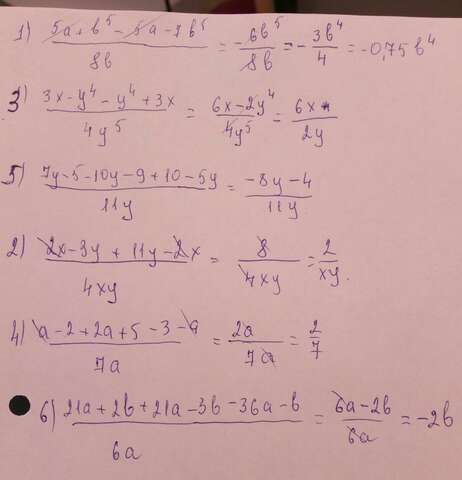 1) (5a + b⁵ - 5a - 7b⁵)/8b = -6b⁵/8b = -3b⁴/4 = -0,75b⁴
3) (3x - y⁴ - y⁴ + 3x)/4y⁵ = (6x - 2y⁴)/4y⁵ = 6x/2y
5) (7y - 5 - 10y - 9 + 10 - 5y)/11y = (-8y - 4)/11y
2) (2x - 3y + 11y - 2x)/4xy = 8/4xy = 2/xy.
4) (a - 2 + 2a + 5 - 3 - a)/7a = 2a/7a = 2/7
6) (21a + 2b + 21a - 3b - 36a - b)/6a = (6a - 2b)/6a = -2b